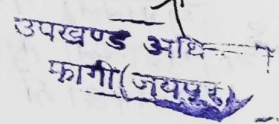 उपखण्ड
फागी (जयपुर)